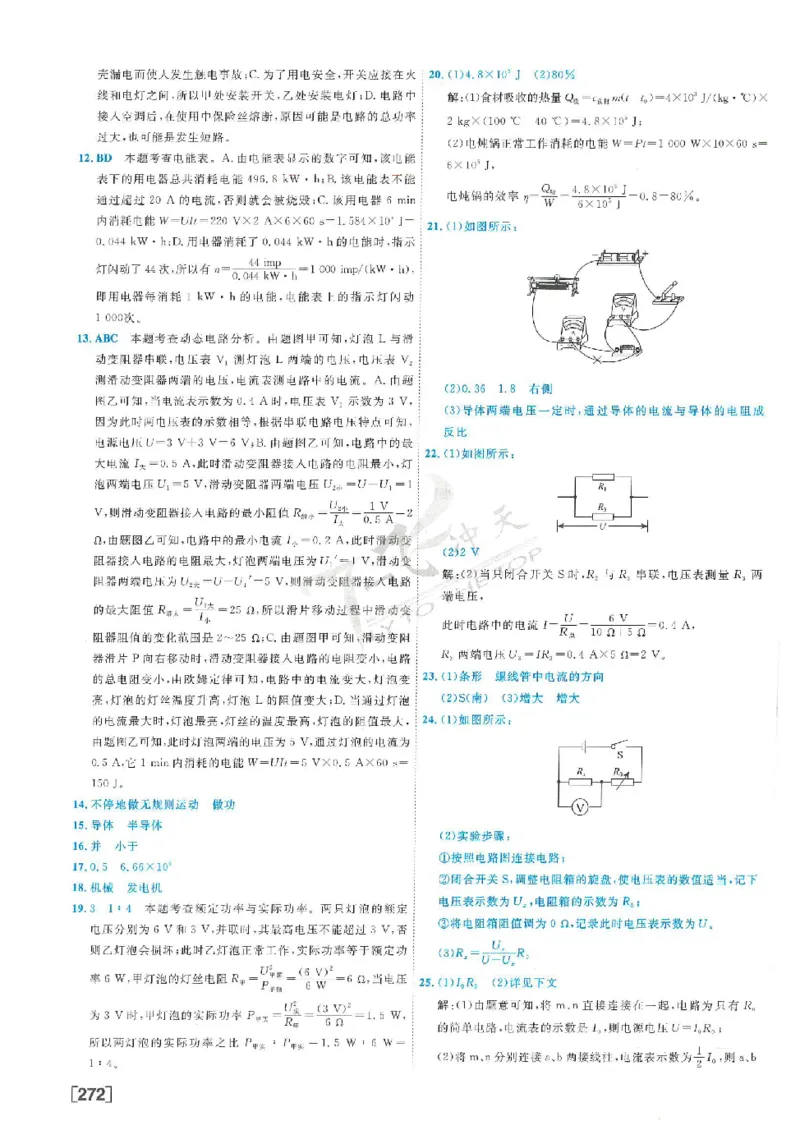 壳漏电而使人发生触电事故;C.为了用电安全,开关应接在火
线和电灯之间,所以甲处安装开关,乙处安装电灯;D.电路中
接入空调后,在使用中保险丝熔断,原因可能是电路的总功率
过大,也可能是发生短路。
12.BD 本题考查电能表。A.由电能表显示的数字可知,该电能
表下的用电器总共消耗电能 496.8 kW·h;B.该电能表不能
通过超过 20 A 的电流,否则就会被烧毁;C.该用电器 6 min
内消耗电能 W=UIt=220 V×2 A×6×60 s=1.584×10⁵ J=
0.044 kW·h;D.用电器消耗了 0.044 kW·h 的电能时,指示
灯闪动了 44 次,所以有 n=44 imp/0.044 kW·h=1 000 imp/(kW·h),
即用电器每消耗 1 kW·h 的电能,电能表上的指示灯闪动
1 000次。
13.ABC 本题考查动态电路分析。由题图甲可知,灯泡 L 与滑
动变阻器串联,电压表 V₁ 测灯泡 L 两端的电压,电压表 V₂
测滑动变阻器两端的电压,电流表测电路中的电流。A.由题
图乙可知,当电流表示数为 0.4 A 时,电压表 V₁ 示数为 3 V,
因为此时两电压表的示数相等,根据串联电路电压特点可知,
电源电压 U=3 V+3 V=6 V;B.由题图乙可知,电路中的最
大电流 I大=0.5 A,此时滑动变阻器接入电路的电阻最小,灯
泡两端电压 U₁=5 V,滑动变阻器两端电压 U₂小=U-U₁=1
V,则滑动变阻器接入电路的最小阻值 R滑小=U₂小/I大=1 V/0.5 A=2
Ω,由题图乙可知,电路中的最小电流 I小=0.2 A,此时滑动变
阻器接入电路的电阻最大,灯泡两端电压为 U₁′=1 V,滑动变
阻器两端电压为 U₂大=U-U₁′=5 V,则滑动变阻器接入电路
的最大阻值 R滑大=U₂大/I小=25 Ω,所以滑片移动过程中滑动变
阻器阻值的变化范围是 2~25 Ω;C.由题图甲可知,滑动变阻
器滑片 P 向右移动时,滑动变阻器接入电路的电阻变小,电路
的总电阻变小,由欧姆定律可知,电路中的电流变大,灯泡变
亮,灯泡的灯丝温度升高,灯泡 L 的阻值变大;D.当通过灯泡
的电流最大时,灯泡最亮,灯丝的温度最高,灯泡的阻值最大,
由题图乙可知,此时灯泡两端的电压为 5 V,通过灯泡的电流为
0.5 A,它 1 min 内消耗的电能 W=UIt=5 V×0.5 A×60 s=
150 J。
14.不停地做无规则运动 做功
15.导体 半导体
16.并 小于
17.0.5 6.66×10⁴
18.机械 发电机
19.3 1∶4 本题考查额定功率与实际功率。两只灯泡的额定
电压分别为 6 V 和 3 V,并联时,其最高电压不能超过 3 V,否
则乙灯泡会损坏;此时乙灯泡正常工作,实际功率等于额定功
率 6 W,甲灯泡的灯丝电阻 R甲=U²甲额/P甲额=(6 V)²/6 W=6 Ω,当电压
为 3 V 时,甲灯泡的实际功率 P甲实=U²实/R甲=(3 V)²/6 Ω=1.5 W,
所以两灯泡的实际功率之比 P甲实∶P乙实=1.5 W∶6 W=
1∶4。
[272]
20.(1)4.8×10⁵ J (2)80%
解:(1)食材吸收的热量 Q吸=c食材m(t-t₀)=4×10³ J/(kg·℃)×
2 kg×(100 ℃-40 ℃)=4.8×10⁵ J;
(2)电炖锅正常工作消耗的电能 W=Pt=1 000 W×10×60 s=
6×10⁵ J,
电炖锅的效率 η=Q吸/W=4.8×10⁵ J/6×10⁵ J=0.8=80%。
21.(1)如图所示:
- +
(2)0.36 1.8 右侧
(3)导体两端电压一定时,通过导体的电流与导体的电阻成
反比
22.(1)如图所示:
R₁
R₃
U
(2)2 V
解:(2)当只闭合开关 S 时,R₂ 与 R₃ 串联,电压表测量 R₃ 两
端电压,
此时电路中的电流 I=U/R总=6 V/10 Ω+5 Ω=0.4 A,
R₃ 两端电压 U₃=IR₃=0.4 A×5 Ω=2 V。
23.(1)条形 螺线管中电流的方向
(2)S(南) (3)增大 增大
24.(1)如图所示:
S
Rₓ R₀
V
(2)实验步骤:
①按照电路图连接电路;
②闭合开关 S,调整电阻箱的旋盘,使电压表的数值适当,记下
电压表示数为 Uₓ,电阻箱的示数为 R₀;
③将电阻箱阻值调为 0 Ω,记录此时电压表示数为 U。
(3)Rₓ=Uₓ/U-Uₓ R₀
25.(1)I₀R₀ (2)详见下文
解:(1)由题意可知,将 m、n 直接连接在一起,电路为只有 R₀
的简单电路,电流表的示数是 I₀,则电源电压 U=I₀R₀;
(2)将 m、n 分别连接 a、b 两接线柱,电流表示数为 1/2 I₀,则 a、b